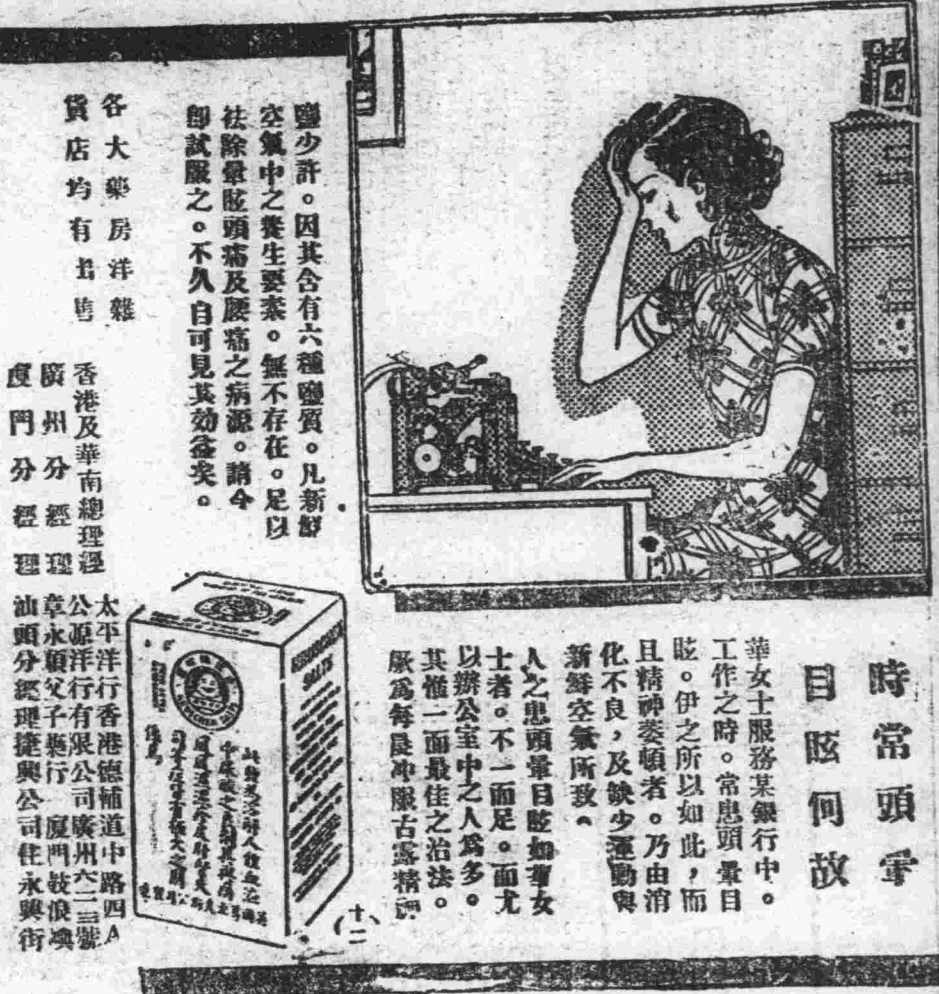 時常頭暈
目眩何故
華女士服務某銀行中。
工作之時。常患頭暈目
眩。伊之所以如此，而
且精神萎頓者。乃由消
化不良，及缺少運動與
新鮮空氣所致。
人之患頭暈目眩如華女
士者。不一而足。而尤
以辦公室中之人爲多。
其惟一面最佳之治法。
厥爲每晨冲服古露精鹽
鹽少許。因其含有六種鹽質。凡新鮮
空氣中之養生要素。無不存在。足以
祛除暈眩頭痛及腰痛之病源。請今
卽試服之。不久自可見其効益矣。
各大藥房洋雜
貨店均有出售
香港及華南總理經 太平洋行香港德補道中路四A
廣州分經理 公源洋行有限公司廣州六二三號
廈門分經理 章永順父子藥行 廈門鼓浪嶼
汕頭分經理捷興公司住永興街
KRUSCHEN SALTS
十二